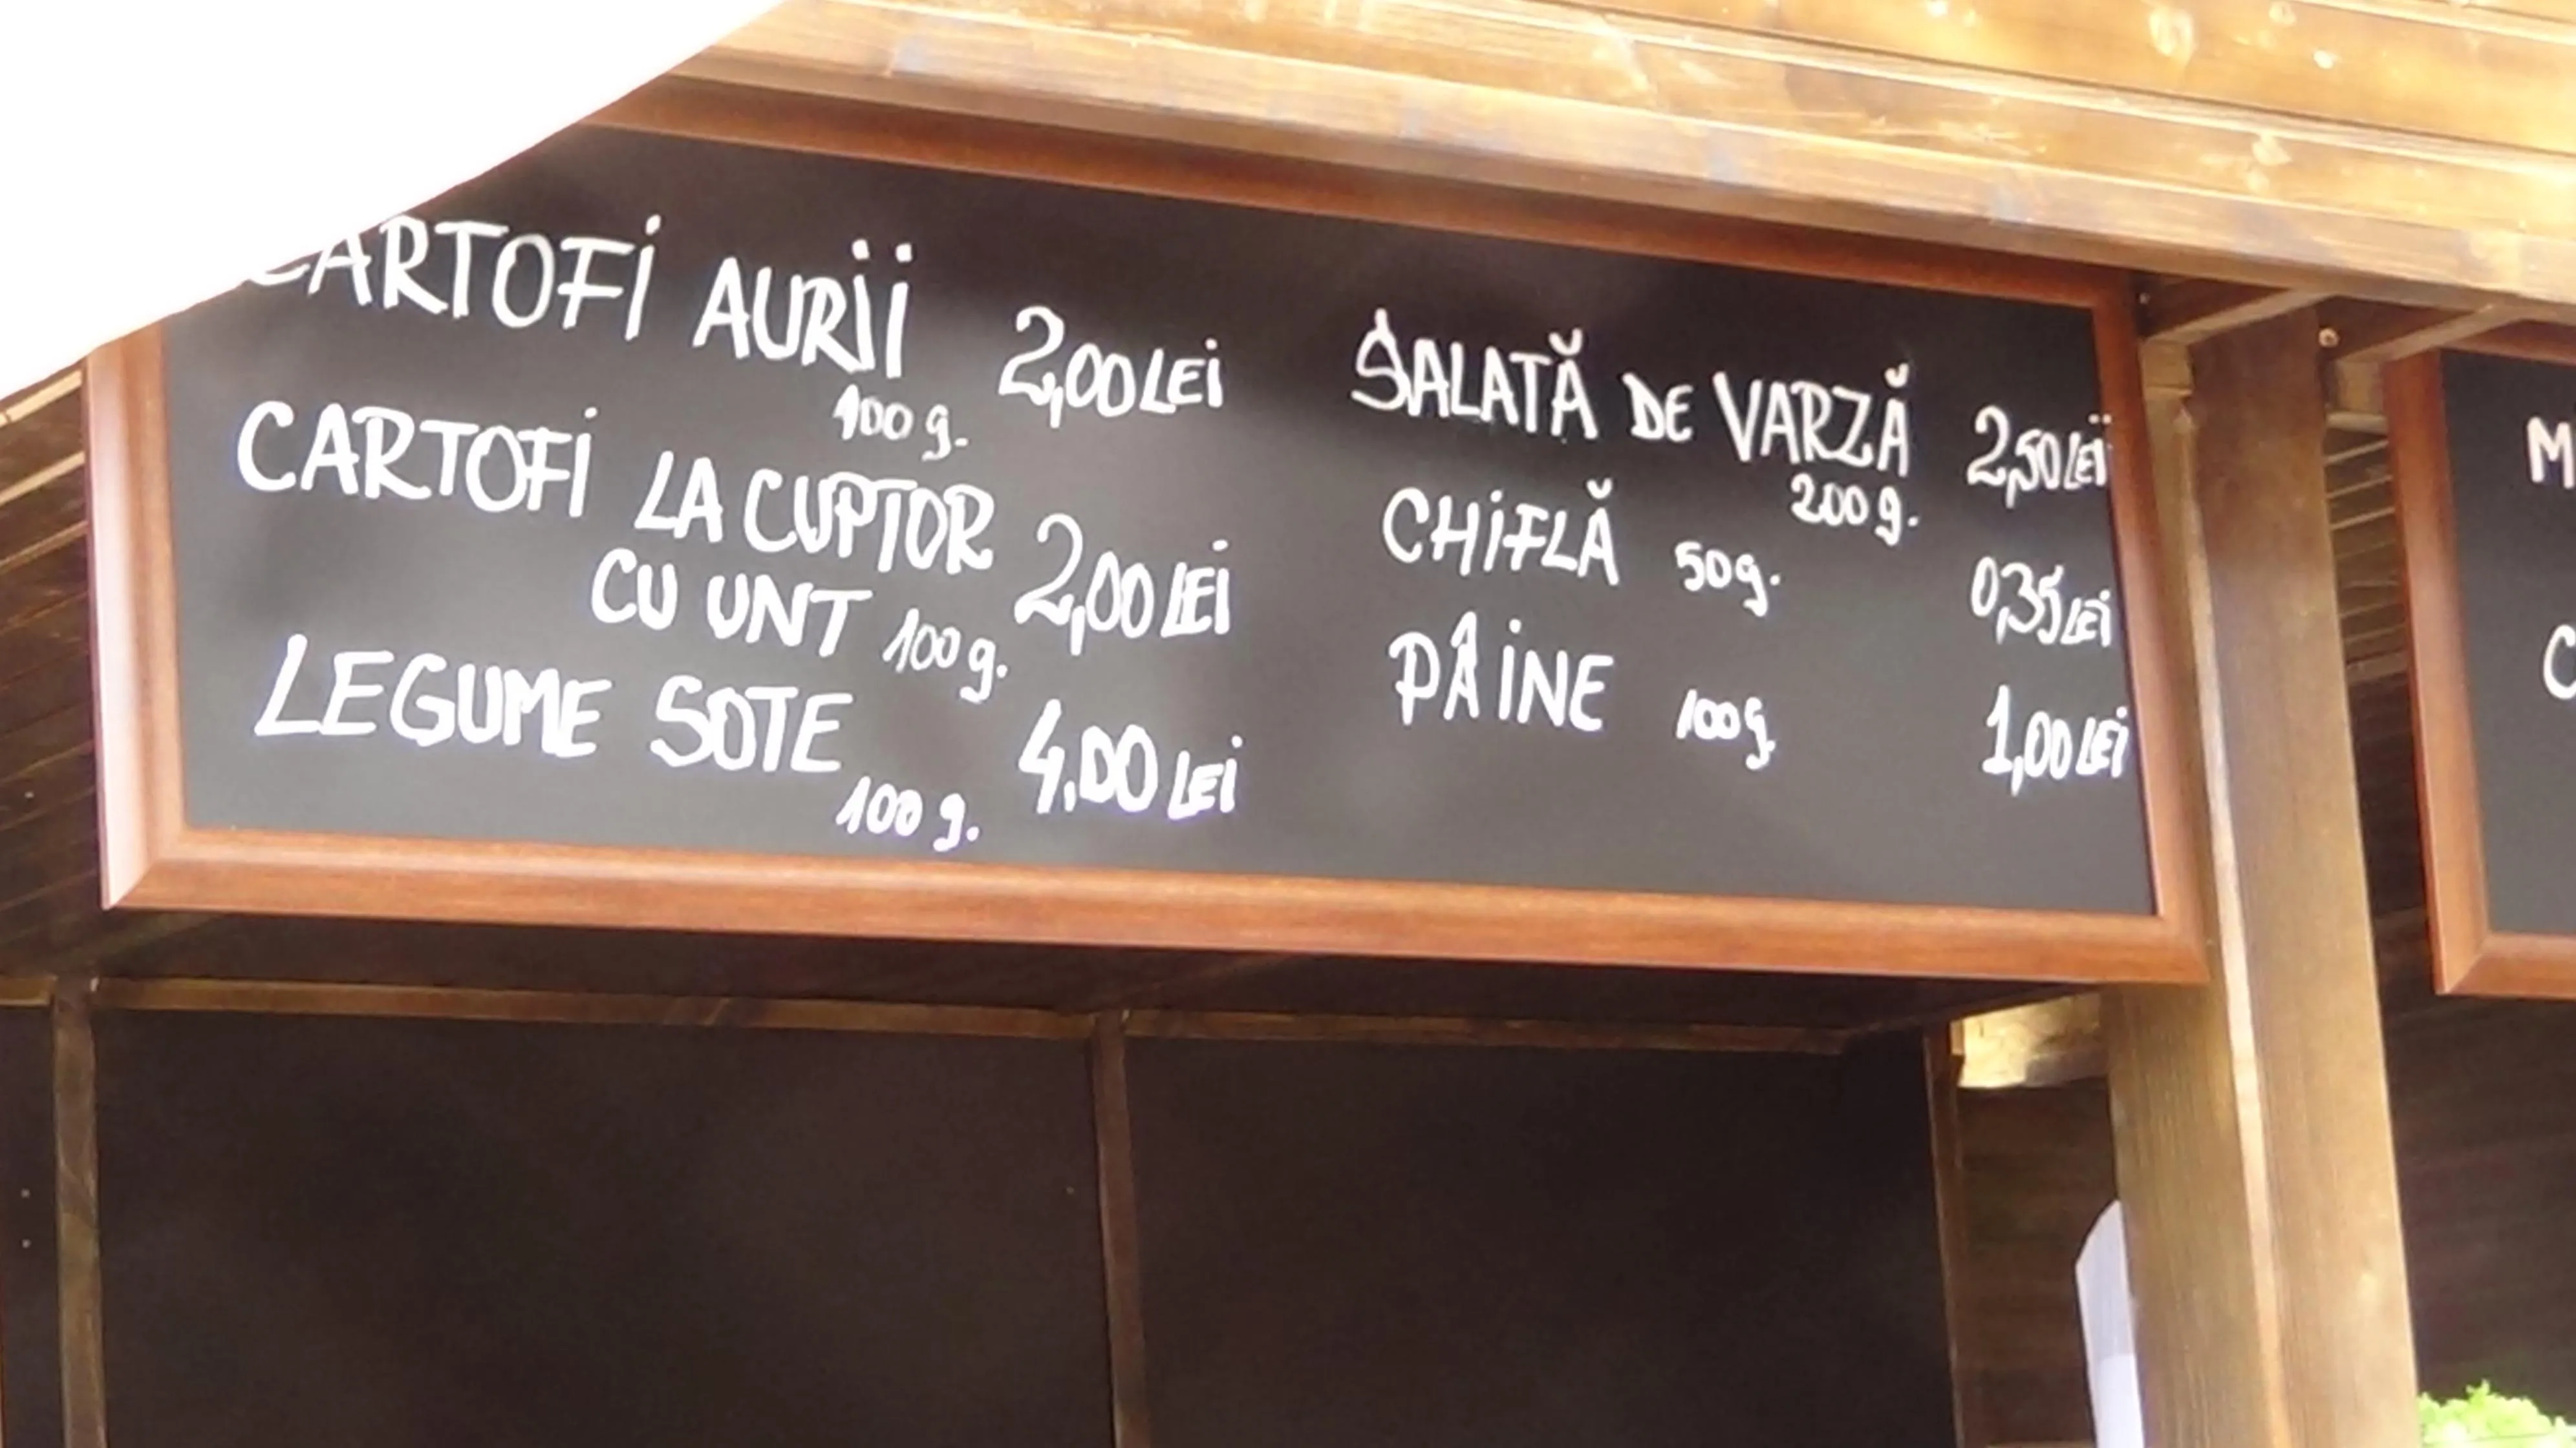 CARTOFI AURII 2,00 LEI
100 g.
CARTOFI LA CUPTOR
CU UNT 100 g. 2,00 LEI
LEGUME SOTE 4,00 LEI
100 g.
SALATĂ DE VARZĂ 2,50 LEI
200 g.
CHIFLĂ 50 g. 0,35 LEI
PÂINE 100 g. 1,00 LEI
M
C